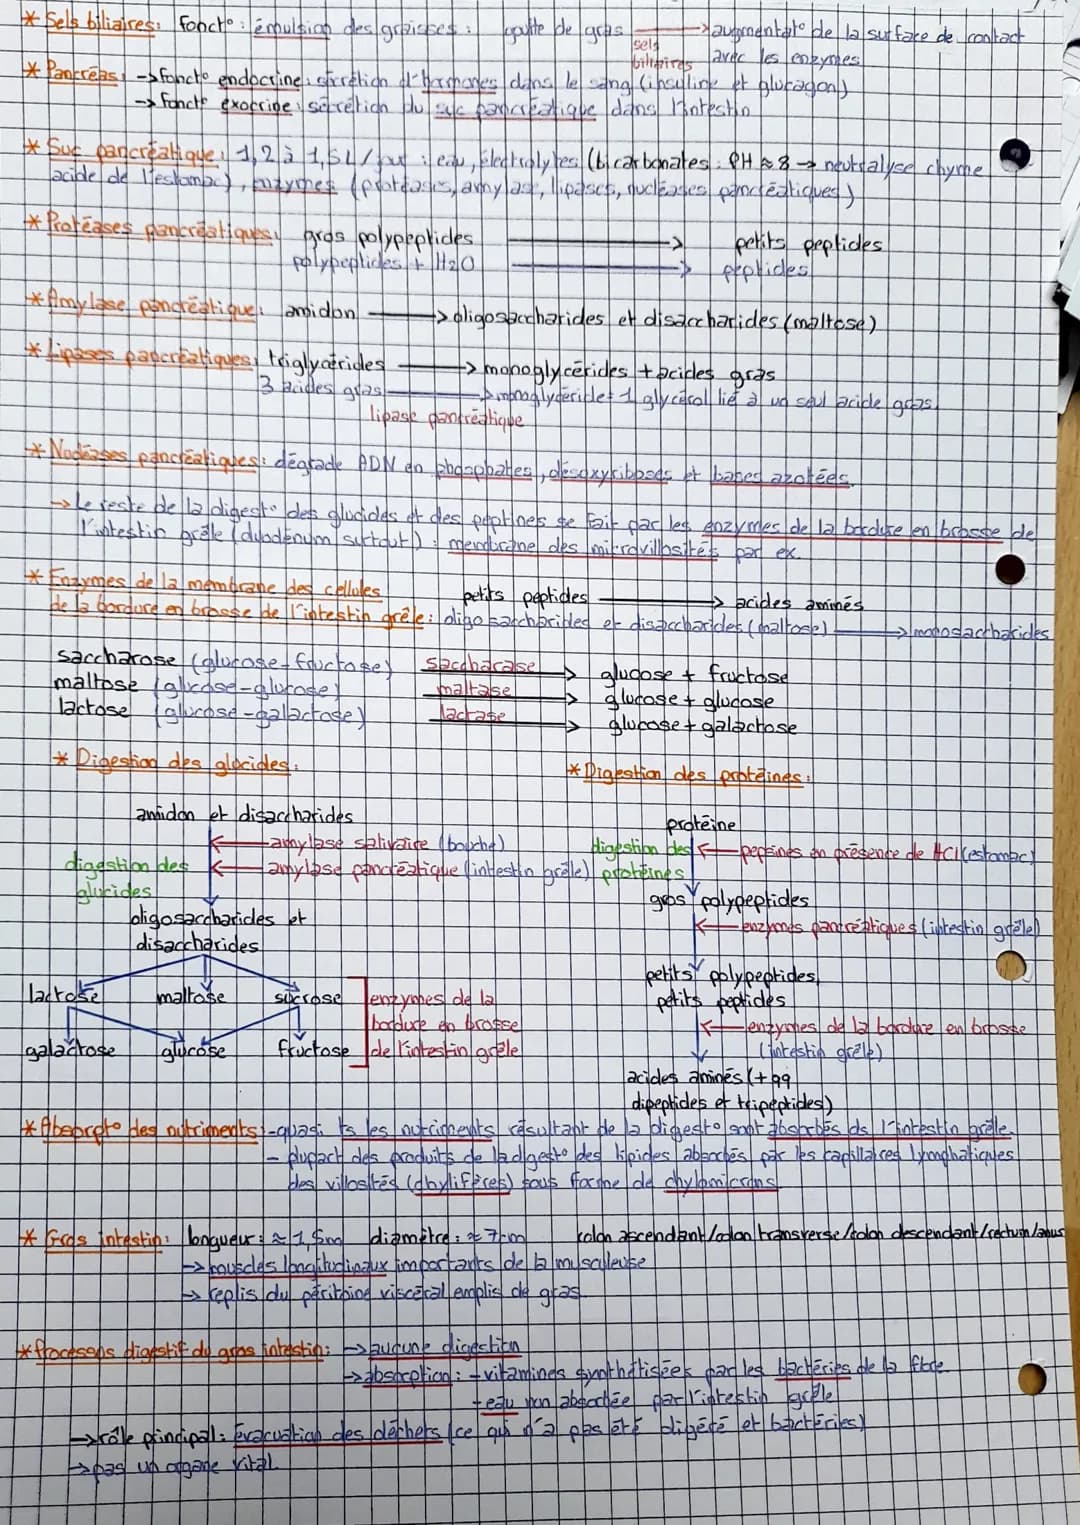 * Sels biliaires: fonct° : émulsion des graisses : goutte de gras → augmentat° de la surface de contact
sels biliaires avec les enzymes
* Pancréas: → fonct° endocrine : sécrétion d'hormones dans le sang (insuline et glucagon)
→ fonct° exocrine : sécrétion du suc pancréatique dans l'intestin
* Suc pancréatique : 1,2 à 1,5L/jour : eau, électrolytes (bicarbonates : PH ≈ 8 → neutralyse chyme
acide de l'estomac), enzymes (protéases, amylase, lipases, nucléases pancréatiques)
* Protéases pancréatiques: gros polypeptides → petits peptides
polypeptides + H2O → peptides
* Amylase pancréatique: amidon → oligosaccharides et disaccharides (maltose)
* Lipases pancréatiques: triglycérides → monoglycérides + acides gras
3 acides gras → monoglycéride = 1 glycérol lié à un seul acide gras
lipase pancréatique
* Nucléases pancréatiques: dégrade ADN en phosphates, désoxyriboses et bases azotées.
→ Le reste de la digest° des glucides et des peptines se fait par les enzymes de la bordure en brosse de
l'intestin grêle (duodénum surtout) : membrane des microvillosités par ex.
* Enzymes de la membrane des cellules petits peptides → acides aminés
de la bordure en brosse de l'intestin grêle : oligosaccharides et disaccharides (maltose) → monosaccharides
saccharose (glucose-fructose) saccharase → glucose + fructose
maltose (glucose-glucose) maltase → glucose + glucose
lactose (glucose-galactose) lactase → glucose + galactose
* Digestion des glucides:
amidon et disaccharides
← amylase salivaire (bouche)
digestion des glucides ← amylase pancréatique (intestin grêle)
oligosaccharides et
disaccharides
lactose maltose sucrose
galactose glucose fructose
enzymes de la
bordure en brosse
de l'intestin grêle
* Digestion des protéines:
protéine
digestion des protéines ← pepsines en présence de HCl (estomac)
gros polypeptides
← enzymes pancréatiques (intestin grêle)
petits polypeptides,
petits peptides
← enzymes de la bordure en brosse
(intestin grêle)
acides aminés (+ qq
dipeptides et tripeptides)
* Absorpt° des nutriments: - quasi ts les nutriments résultant de la digest° sont absorbés ds l'intestin grêle.
- plupart des produits de la digest° des lipides absorbés par les capillaires lymphatiques
des villosités (chylifères) sous forme de chylomicrons
* Gros intestin: longueur : ≈ 1,5m diamètre : ≈ 7cm colon ascendant/colon transverse/colon descendant/rectum/anus
→ muscles longitudinaux importants de la musculeuse
→ replis du péritoine viscéral emplis de gras
* Processus digestif du gros intestin: → aucune digestion
→ absorption : - vitamines synthétisées par les bactéries de la flore
- eau non absorbée par l'intestin grêle
→ rôle principal : évacuation des déchets (ce qui n'a pas été digéré et bactéries)
→ pas un organe vital